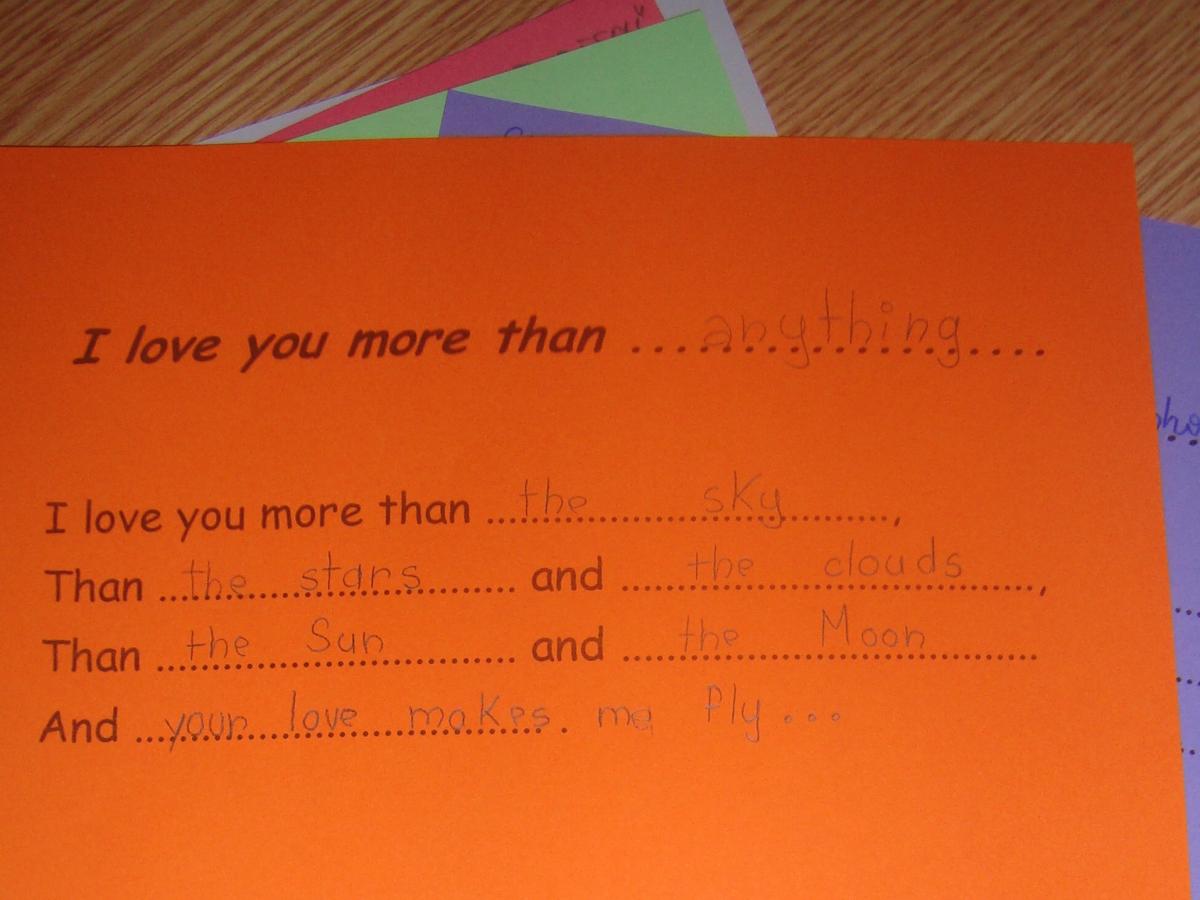 I love you more than ....anything....
I love you more than ...the sky...,
Than ...the stars... and ...the clouds...,
Than ...the Sun... and ...the Moon...
And ...your love makes. me fly...